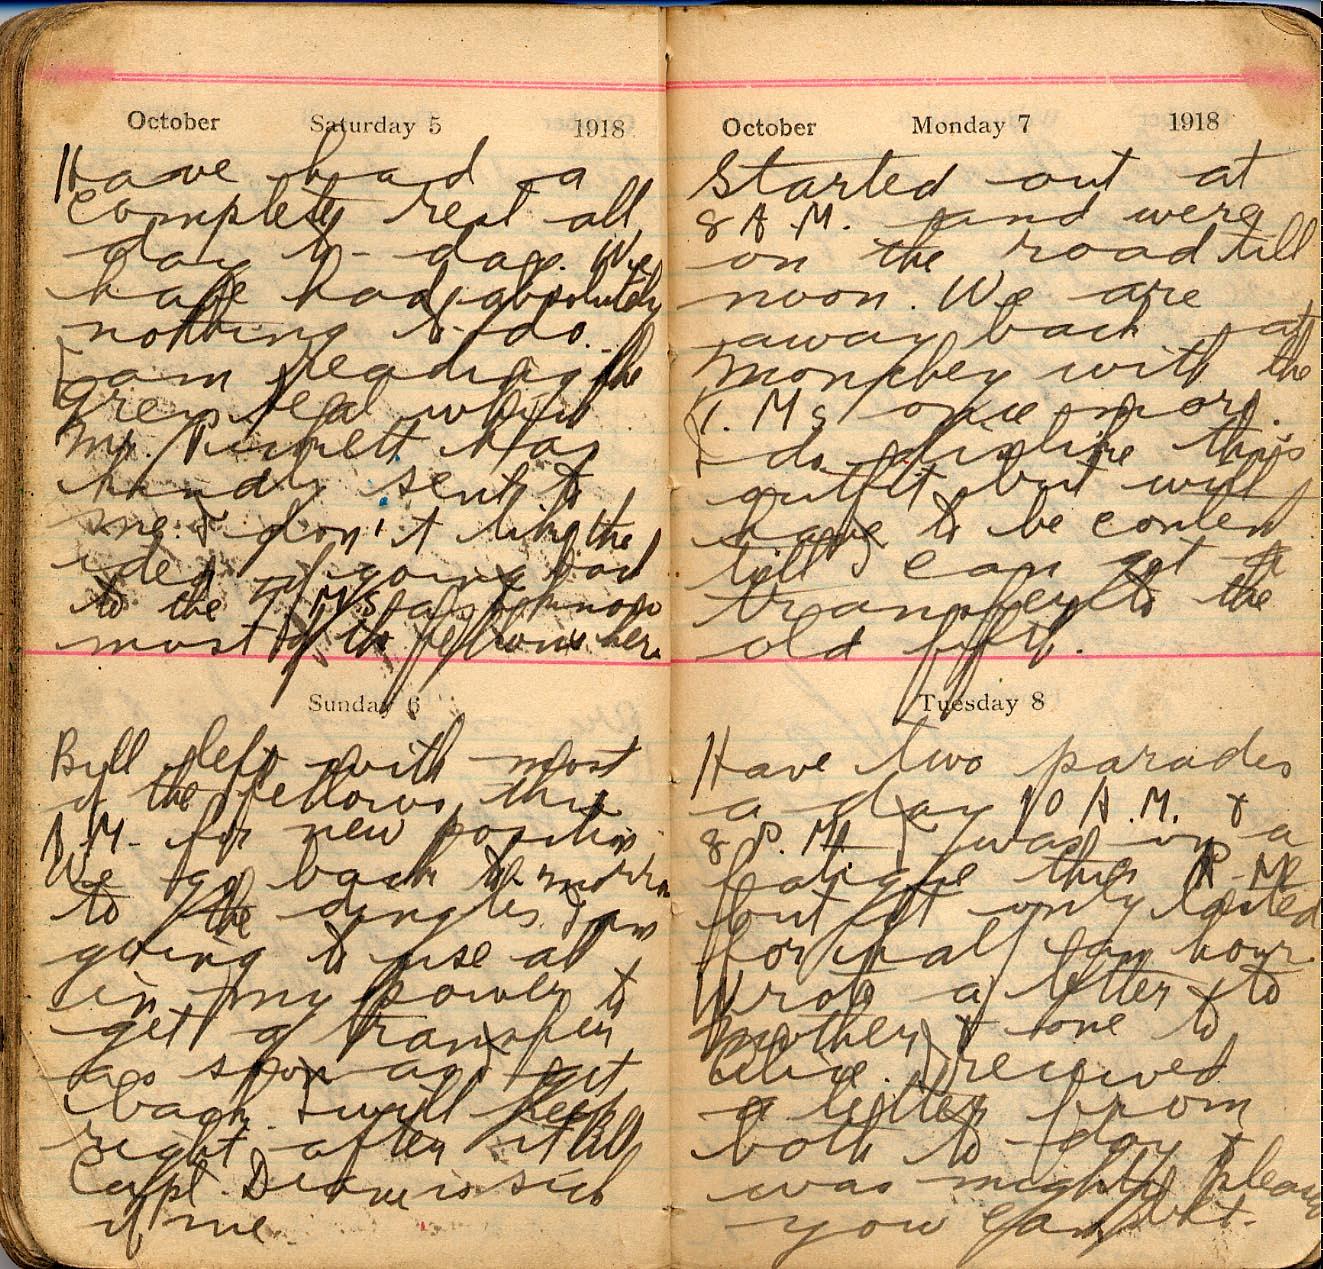 October Saturday 5 1918
Have had a
complete rest all
day to-day. We
have had absolutely
nothing to do.
I am reading the
grey seal which
Mr. has
kindly sent to
me. I don't like the
idea of going back
to the T.M.s as I know
most of the fellows here
Sunday 6
Bill left with most
of the fellows this
A.M. for new position
We go back to-morrow
to the dingles I am
going to use all
in my power to
get a transfer
as soon as I get
back. I will keep
right after it till
Capt. is sick
of me.
October Monday 7 1918
Started out at
8 A.M. and were
on the road till
noon. We are
away back at
with the
T.M.s once more.
I do dislike this
outfit but will
have to be content
till I can get a
transfer to the
old fifth.
Tuesday 8
Have two parades
a day 10 A.M. &
8 P.M. I was on a
fatigue this P.M.
but it only lasted
for half an hour.
Wrote a letter to
Mother & one to
Alice. I received
a letter from
both to-day &
was mighty pleased
you can bet.